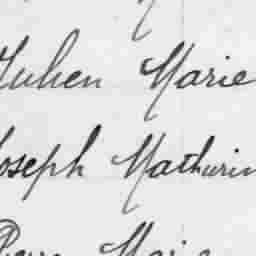 Julien Marie
Joseph Mathurin
Marie